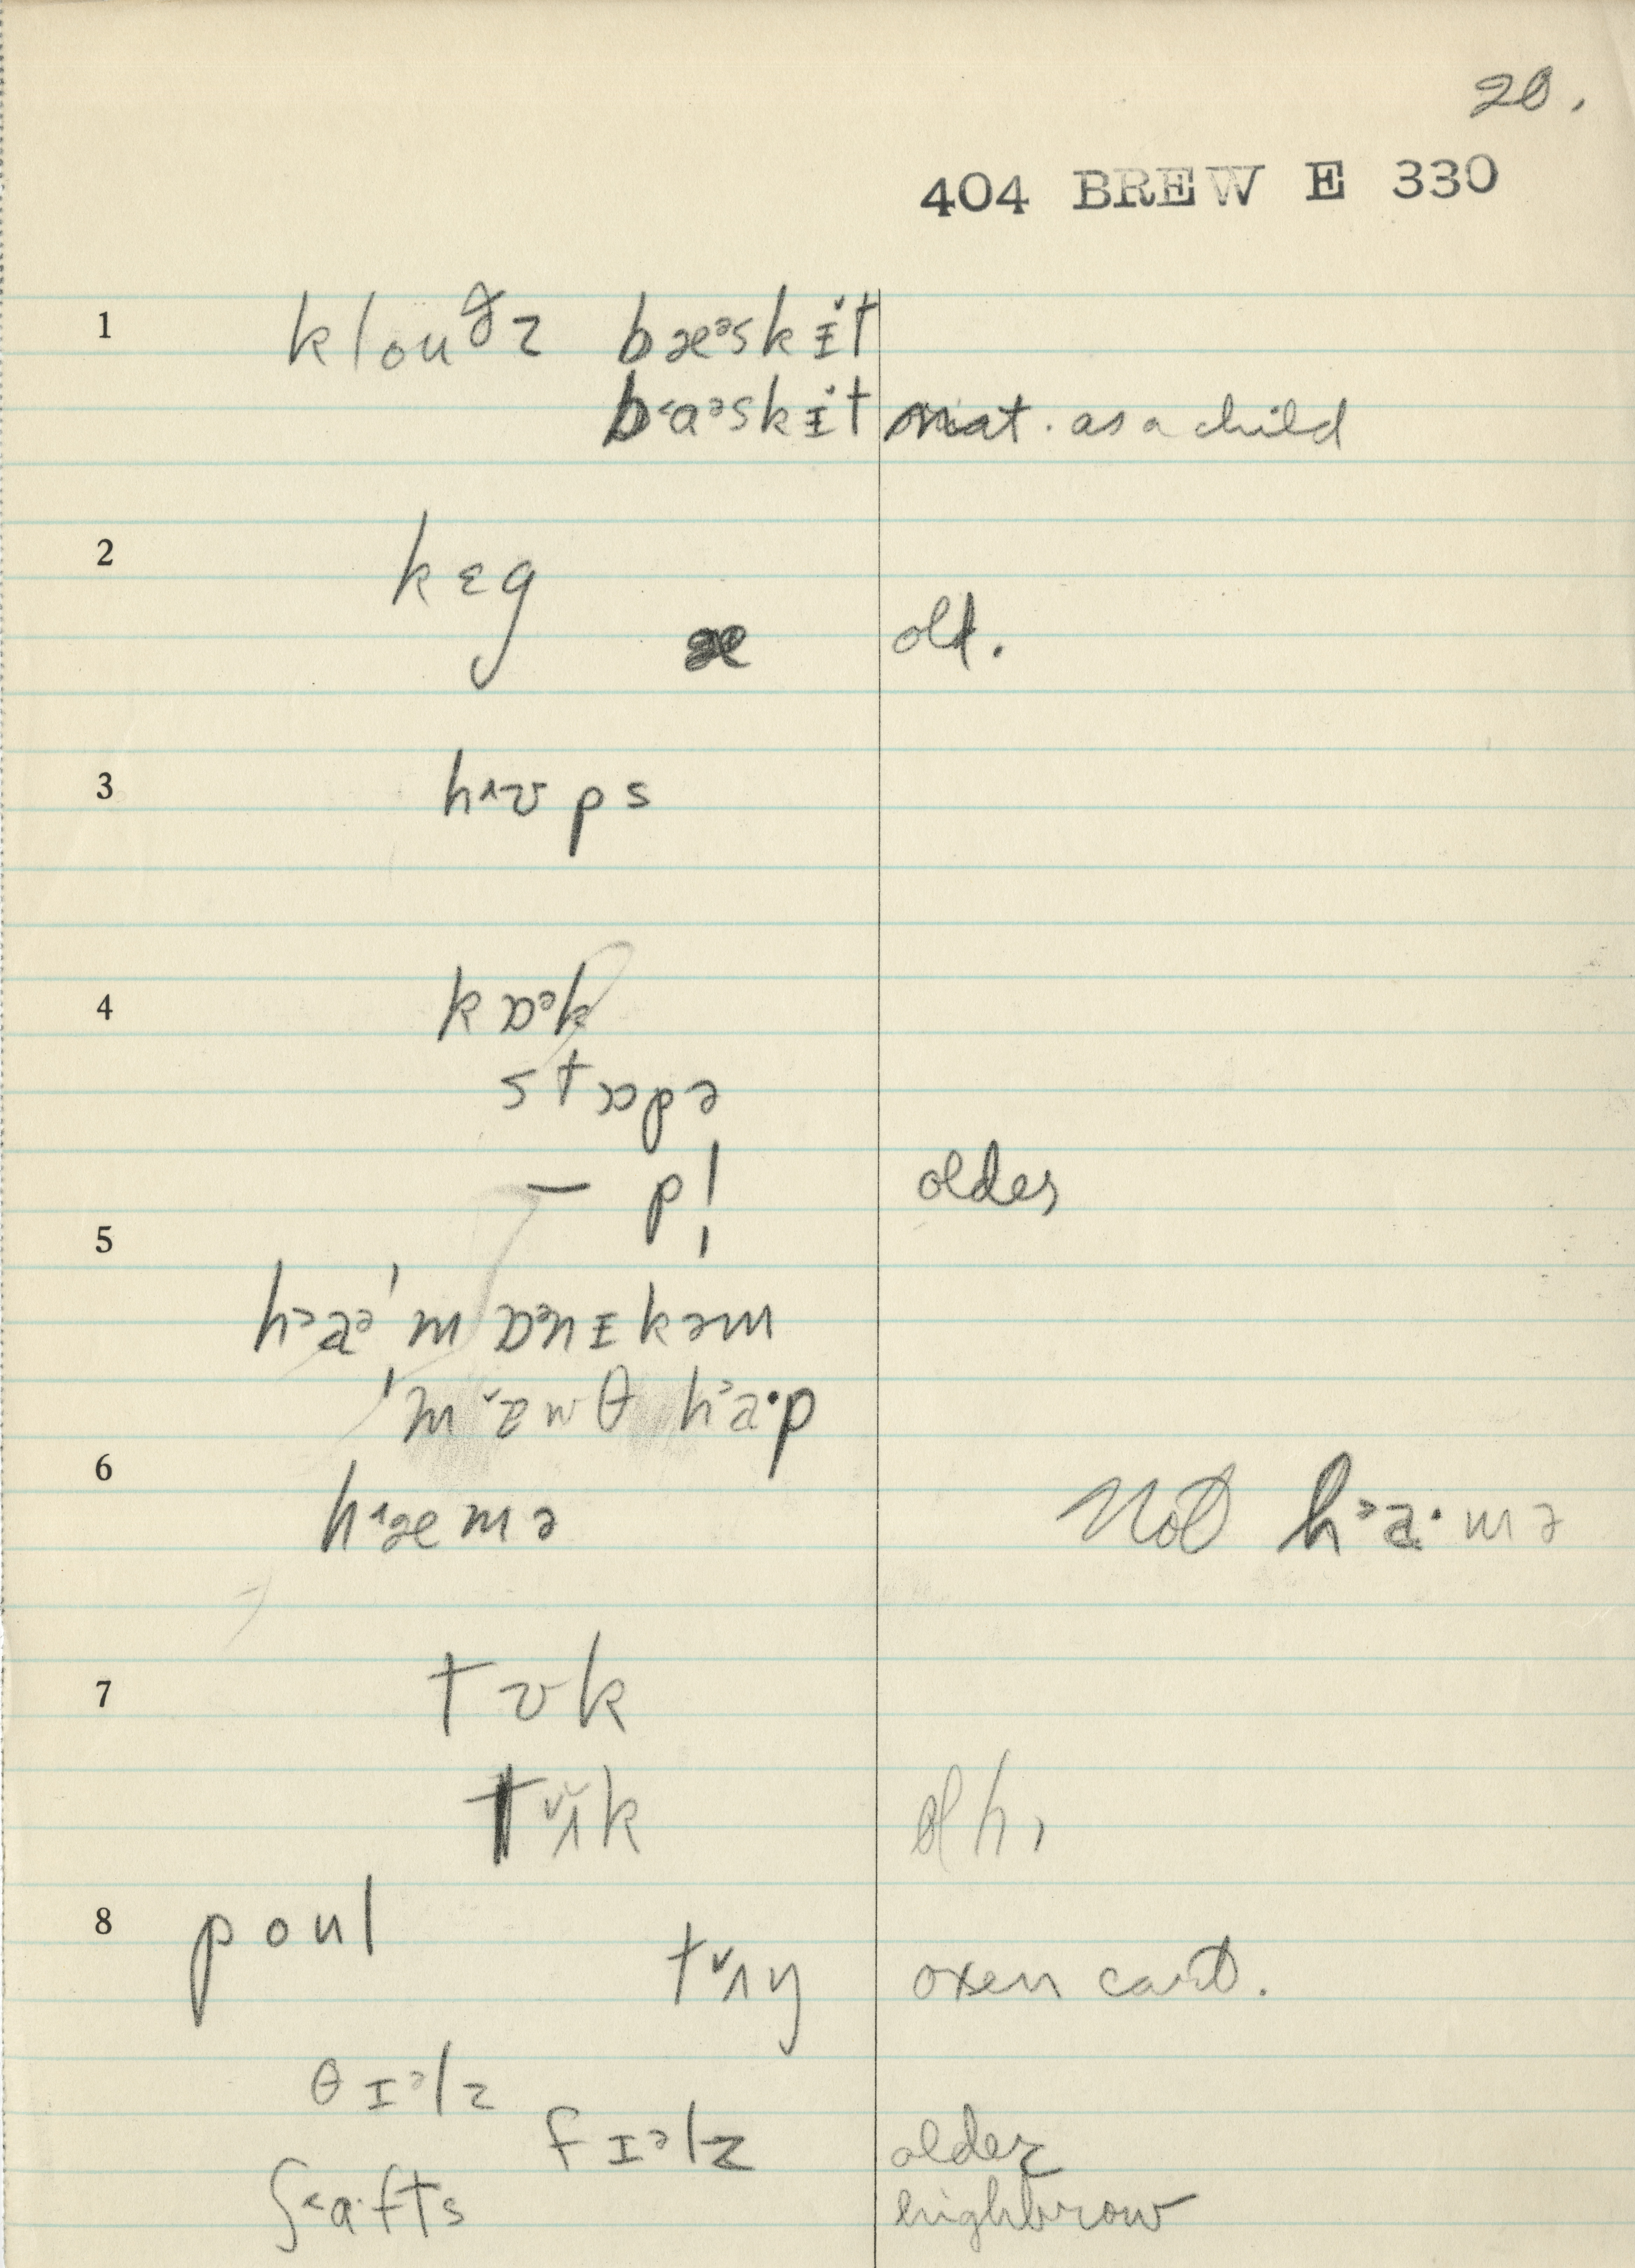 20.
404 BREW E 330
1 klouᵟz bæᵊskɪ̌t
b˂aᵊskɪ̌t nat. as a child
2 kɛg
æ old.
3 h˄ʊps
4 kɒᵊk
stɒpə
— pl̩ older
5
hᵊaᵊ'mɒᵊnɪkəm
'mˇɛwθ h˃a·p
6
h˄æmə Not h˃a·mə
7 tʊk
tˇʌ̌k oth,
8 poul
tˇʌŋ oxen cart.
θɪᵊlz
fɪᵊlz older
ʃ˂a·fts highbrow